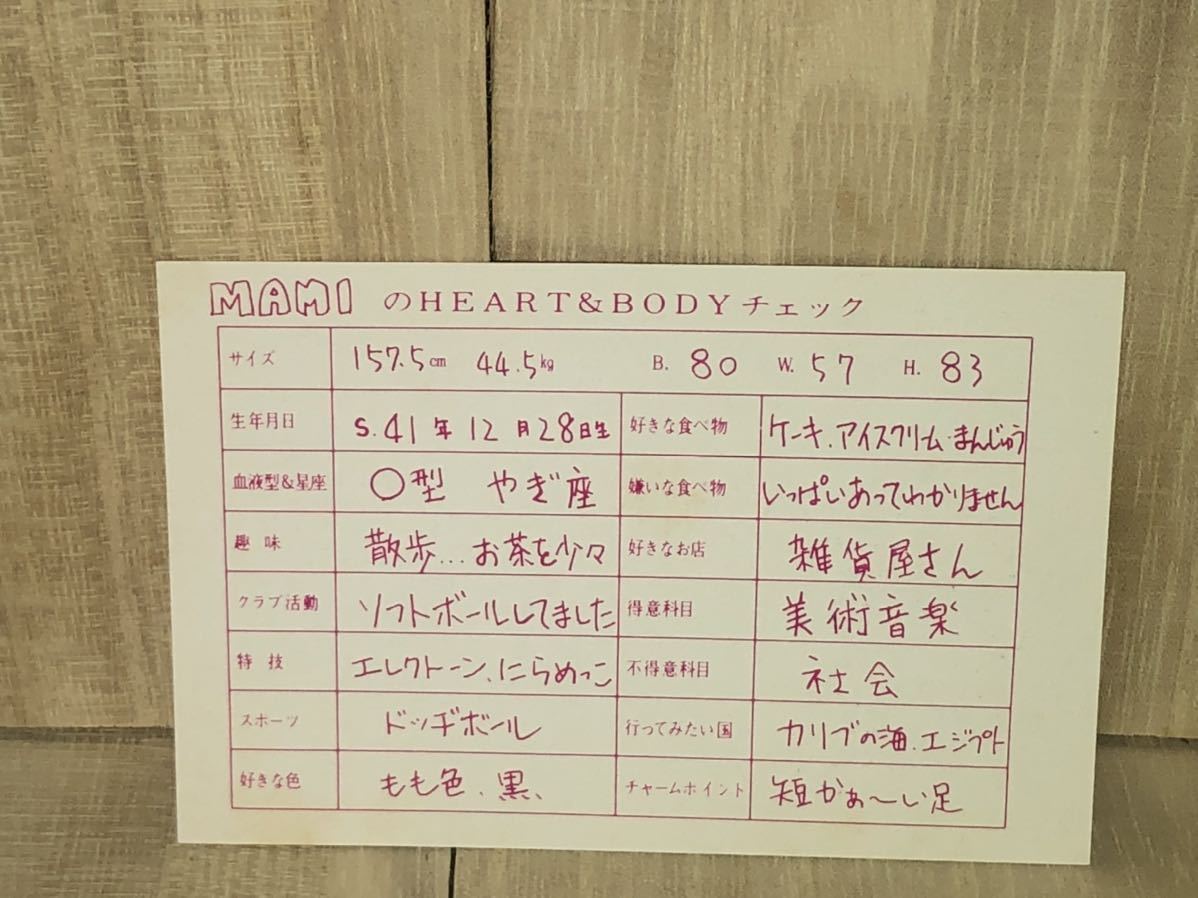 MAMI のHEART&BODYチェック
サイズ 157.5cm 44.5kg B. 80 W. 57 H. 83
生年月日 S.41年12月28日生 好きな食べ物 ケーキ.アイスクリーム.まんじゅう
血液型&星座 O型 やぎ座 嫌いな食べ物 いっぱいあってわかりません
趣味 散歩...お茶を少々 好きなお店 雑貨屋さん
クラブ活動 ソフトボールしてました 得意科目 美術音楽
特技 エレクトーン、にらめっこ 不得意科目 社会
スポーツ ドッヂボール 行ってみたい国 カリブの海.エジプト
好きな色 もも色、黒、 チャームポイント 短かぁ〜い足